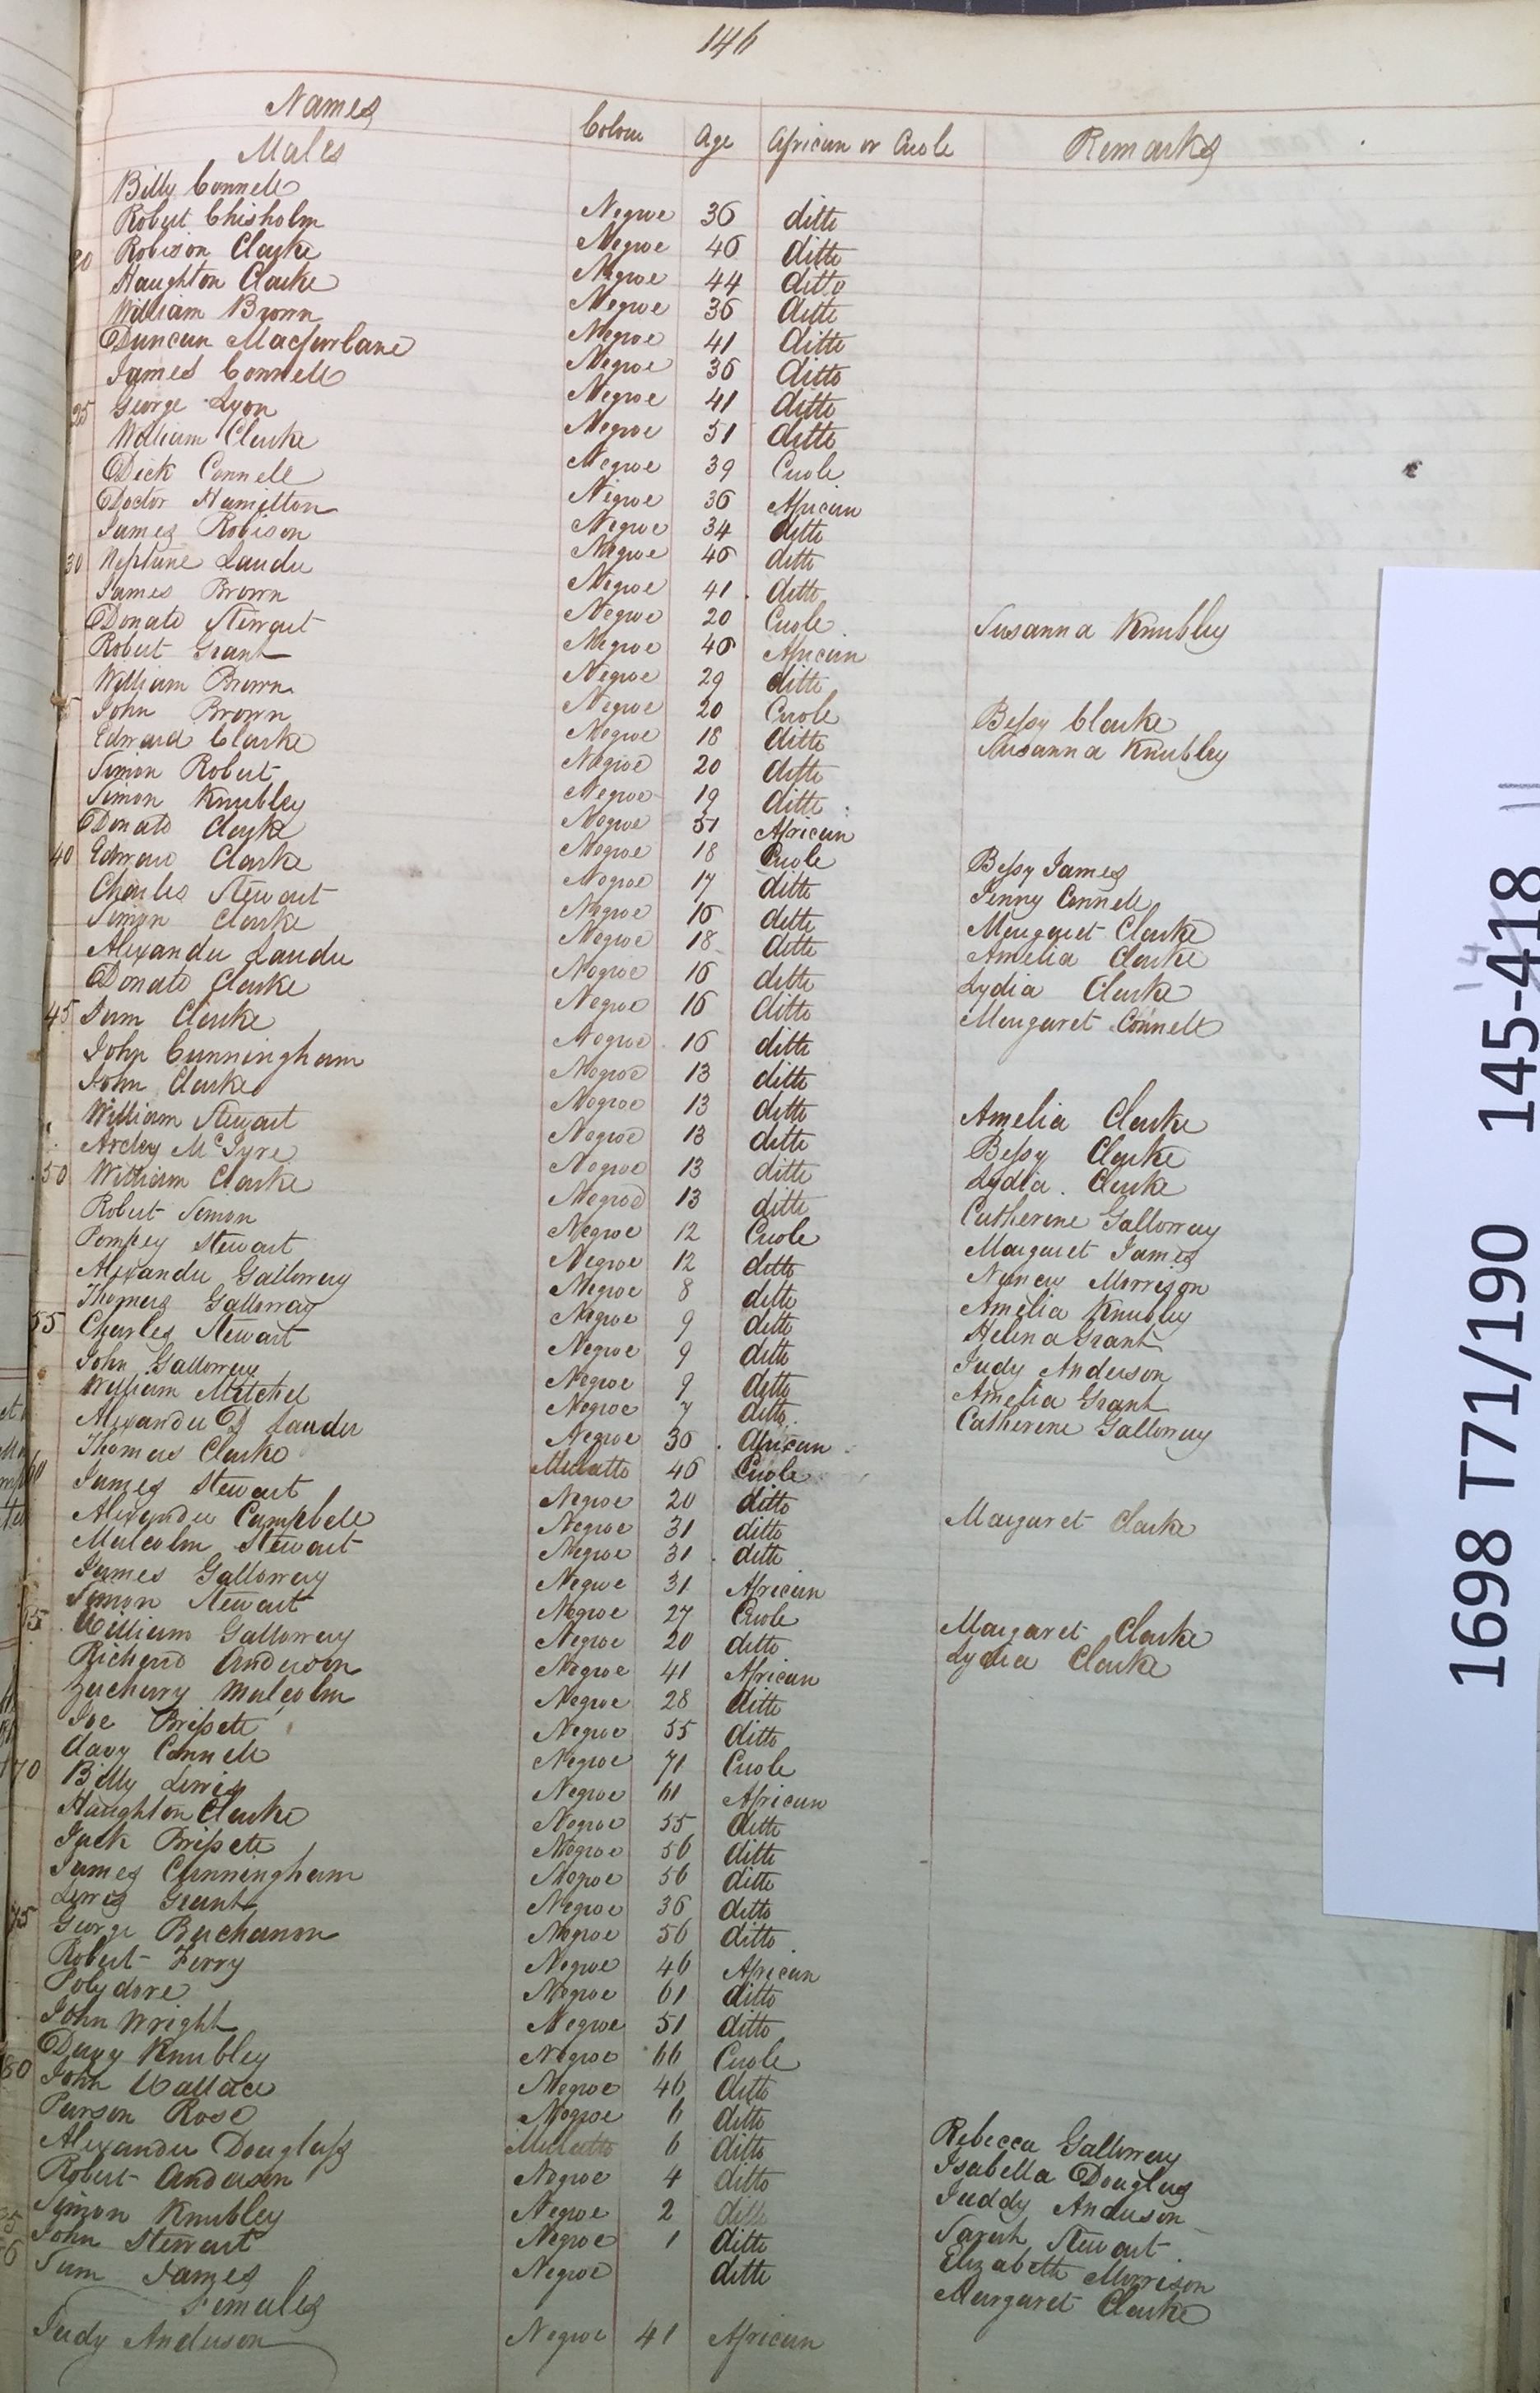 146
Names Colour Age African or Creole Remarks
Males
Billy Connell Negroe 36 ditto
Robert Chisholm Negroe 46 ditto
20 Robison Clarke Negroe 44 ditto
Haughton Clarke Negroe 36 ditto
William Brown Negroe 41 ditto
Duncan Macfarlane Negroe 36 ditto
James Connell Negroe 41 ditto
25 George Lyon Negroe 51 ditto
William Clarke Negroe 39 Creole
Dick Connell Negroe 36 African
Doctor Hamilton Negroe 34 ditto
James Robison Negroe 46 ditto
30 Neptune Lauder Negroe 41 ditto
James Brown Negroe 20 Creole Susanna Knubley
Donald Stewart Negroe 46 African
Robert Grant Negroe 29 ditto
William Brown Negroe 20 Creole Bessy Clarke
John Brown Negroe 18 ditto Susanna Knubley
Edward Clarke Negroe 20 ditto
Simon Robert Negroe 19 ditto
Simon Knubley Negroe 51 African
Donald Clarke Negroe 18 Creole Bessy James
40 Edward Clarke Negroe 17 ditto Jenny Connell
Charles Stewart Negroe 16 ditto Margaret Clarke
Simon Clarke Negroe 18 ditto Amelia Clarke
Alexander Lauder Negroe 16 ditto Lydia Clarke
Donald Clarke Negroe 16 ditto Margaret Connell
45 Sam Clarke Negroe 16 ditto
John Cunningham Negroe 13 ditto
John Clarke Negroe 13 ditto Amelia Clarke
William Stewart Negroe 13 ditto Bessy Clarke
Archy McIyre Negroe 13 ditto Lydia Clarke
50 William Clarke Negroe 13 ditto Catherine Galloway
Robert Simon Negroe 12 Creole Margaret James
Pompey Stewart Negroe 12 ditto Nancy Morrison
Alexander Galloway Negroe 8 ditto Amelia Knubley
Thomas Galloway Negroe 9 ditto Helena Grant
55 Charles Stewart Negroe 9 ditto Judy Anderson
John Galloway Negroe 9 ditto Amelia Grant
William Mitchel Negroe 7 ditto Catherine Galloway
Alexander D Lauder Negroe 36 African
Thomas Clarke Mulatto 46 Creole
60 James Stewart Negroe 20 ditto Margaret Clarke
Alexander Campbell Negroe 31 ditto
Malcolm Stewart Negroe 31 ditto
James Galloway Negroe 31 African
Simon Stewart Negroe 27 Creole Margaret Clarke
65 William Galloway Negroe 20 ditto Lydia Clarke
Richard Anderson Negroe 41 African
Zachary Malcolm Negroe 28 ditto
Joe Brissett Negroe 55 ditto
Davy Connell Negroe 71 Creole
70 Billy Lewis Negroe 61 African
Haughton Clarke Negroe 55 ditto
Jack Brissett Negroe 56 ditto
James Cunningham Negroe 56 ditto
Lewis Grant Negroe 36 ditto
75 George Buchanan Negroe 56 ditto
Robert Ferry Negroe 46 African
Polydore Negroe 61 ditto
John Wright Negroe 51 ditto
Davy Knubley Negroe 66 Creole
80 John Wallace Negroe 46 ditto
Parson Rose Negroe 6 ditto Rebecca Galloway
Alexander Douglass Mulatto 6 ditto Isabella Douglas
Robert Anderson Negroe 4 ditto Juddy Anderson
Simon Knubley Negroe 2 ditto Sarah Stewart
John Stewart Negroe 1 ditto Elizabeth Morrison
Sam James Negroe ditto Margaret Clarke
Females
Judy Anderson Negroe 41 African
1698 T71/190 145-418